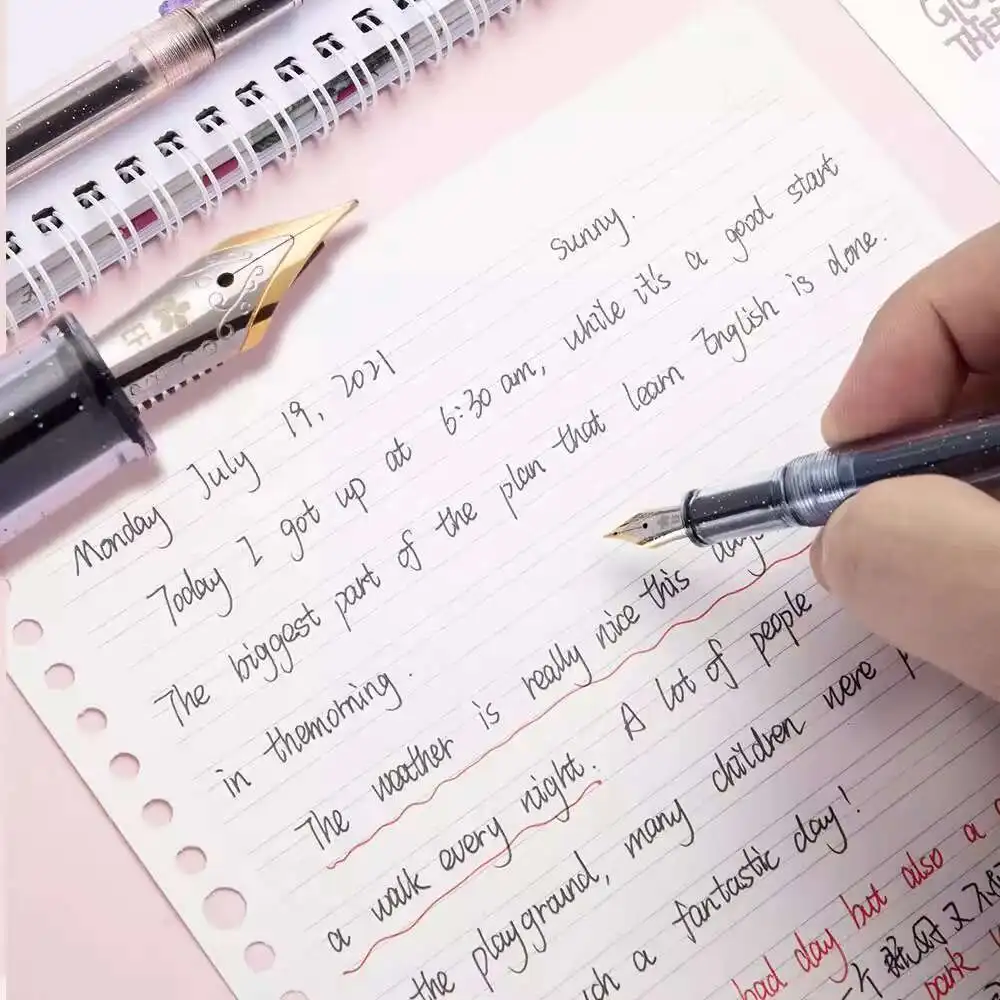 Monday July 19, 2021 sunny.
Today I got up at 6:30 am, while it's a good start
The biggest part of the plan that learn English is done.
in themorning.
The weather is really nice this days
a walk every night. A lot of people
the playground, many children were
a fantastic day!
bad day but also a
park
EF